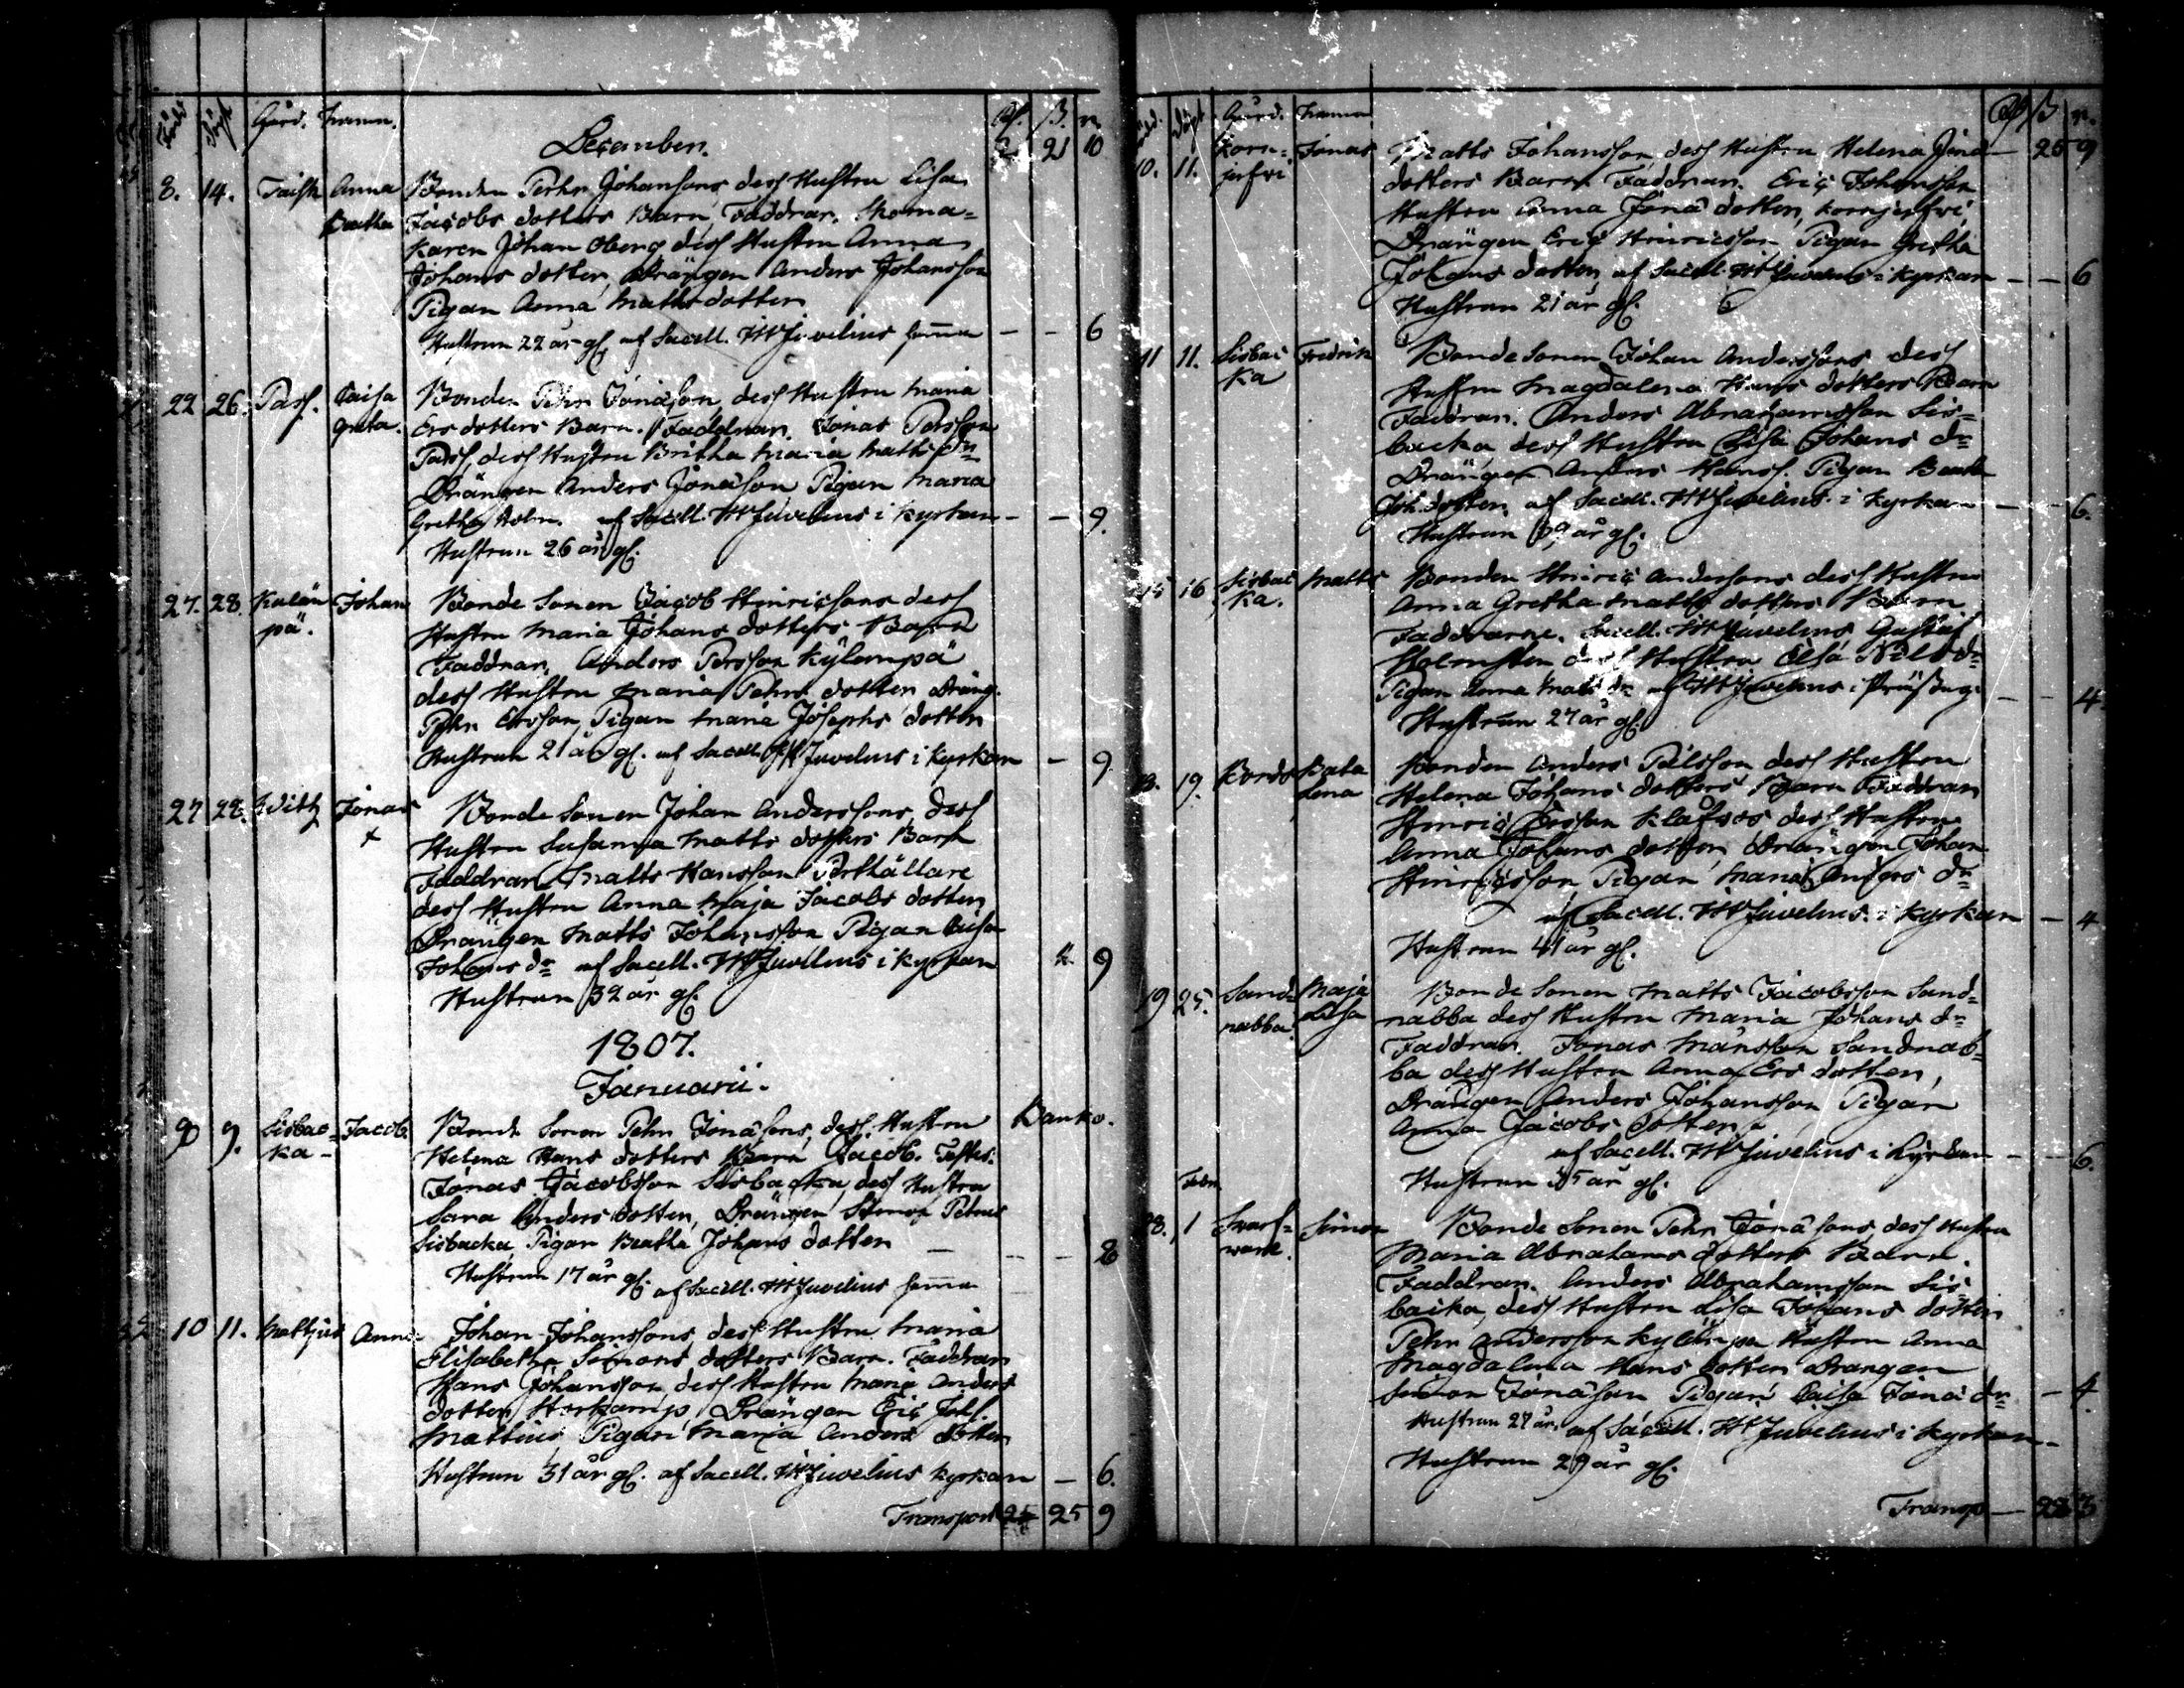 Född Döpt Gård. Namn.
December.
Rf. ß. r.
2 21 10
8. 14. Taisk Anna Bonden Pehr Johanssons, dess Hustru Lisa
Beatha Jacobs dotters Barn, Faddrar. Skoma=
karen Johan Öberg dess Hustru Anna
Johans dotter, Drängen Anders Johansson
Pigan Anna Matts dotter
Hustrun 22 år gl. af Sacell. Juvelius hemma — — 6
22 26. Pass. Caisa Bonden Pehr Jonasson dess Hustru Maria
Greta. Ers dotters Barn. Faddrar. Jonas Persson
Pass, dess Hustru Britha Maria Matts dr
Drängen Anders Jonasson, Pigan Maria
Gretha Holm. af Sacell. Juvelius i kyrkan — — 9.
Hustrun 26 år gl.
27. 28. Johan Bonde Sonen Jacob Hinricssons dess
pä. Hustru Maria Johans dotters Barn
Faddrar, Anders Persson Kylempä
dess Hustru Maria Pehrs dotter Dräng.
Pehr Ersson, Pigan Maria Josephs dotter
Hustrun 21 år gl. af Sacell. Juvelius i kyrkan — 9
27 28. Witz Jonas Bonde Sonen Johan Anderssons, dess
+ Hustru Susanna Matts dotters Barn
Faddrar, Matts Hansson Porthällare
dess Hustru Anna Maja Jacobs dotter
Drängen Matts Johansson Pigan Caisa
Johans dr af Sacell. Juvelius i kyrkan 9
Hustrun 32 år gl.
1807.
Januarii.
9. Sisbac= Jacob. Bonde Sonen Pehr Jonasons, dess Hustru Banko.
ka - Helena Hans dotters Barn Jacob. Testes:
Jonas Jacobsson Sisbacka, dess Hustru
Sara Anders dotter, Drängen Simon Pehrs
Sisbacka, Pigan Beatha Johans dotter — — — 8
Hustrun 17 år gl. af Sacell. Juvelius hemma
10 11. Mattjus Anna Johan Johanssons, dess Hustru Maria
Elisabetha Simons dotters Barn. Faddrar
Hans Johansson, dess Hustru Maria Anders
dotter Storkamp, Drängen Eric Joh.
Mattius, Pigan Maria Anders dotter
Hustrun 31 år gl. af Sacell. Juvelius kyrkan — 6.
Transport 25 9
Född. Döpt Gård. Namn
Rf ß r.
10. 11. Korn= Jonas Matts Johansson, dess Hustru Helena Jona — 25 9
jerfvi dotters Barn Faddrar. Eric Johansson
Hustru Anna Jona dotter, Kornjerfvi,
Drängen Eric Hinricsson Pigan Gretha
Johans dotter, af Sacell. Juvelius i kyrkan — — 6
Hustrun 21 år gl.
11 11. Sisbac Fredrik Bonde Sonen Johan Anderssons dess
ka Hustru Magdalena Hans dotters Barn
Faddrar. Anders Abrahamsson Sis=
backa dess Hustru Lisa Johans dr
Drängen Anders Hans. Pigan Beata
Joh. dotter af Sacell. Juvelius i kyrkan — — 6.
Hustrun 39 år gl.
15 16 Sisbac Matts Bonden Hinric Anderssons dess Hustru
ka. Anna Gretha Matts dotters Barn.
Faddrarne. Sacell. Juvelius, Gustaf
Holmsten dess Hustru Elsa Nils dr
Pigan Anna Matts dr af Juvelius i Prästeg. — — 4
Hustrun 27 år gl.
19. Bonden Anders dess Hustru
Lena Helena Johans dotters Barn Faddrar
Hinric Ersson Klåfsos dess Hustru
Anna Johans dotter, Drängen Johan
Hinricsson, Pigan Maria Anders dr
af Sacell. Juvelius. i kyrkan — 4
Hustrun 41 år gl.
19 25. Sand= Maja Bonde Sonen Matts Jacobsson Sand=
nabba Lisa nabba dess Hustru Maria Johans dr
Faddrar. Jonas Månsson Sandnab=
ba dess Hustru Anna Ers dotter,
Drängen Anders Johansson Pigan
Anna Jacobs dotter,
af Sacell. Juvelius i Kyrkan — — 6.
Hustrun 35 år gl.
Febr.
28. 1 Svart= Simon Bonde Sonen Pehr Jonasons, dess Hustru
Maria Abrahams dotters Barn.
Faddrar. Anders Abrahamsson Sis=
backa, dess Hustru Lisa Johans dotter
Pehr Andersson Kylempä Hustru Anna
Magdalena Hans dotter Drängen
Simon Jonasson Pigan Caisa Jona dr — 4
Hustrun 27 år. af Sacell. Juvelius i kyrkan
Hustrun 29 år gl.
Transp — 28 3